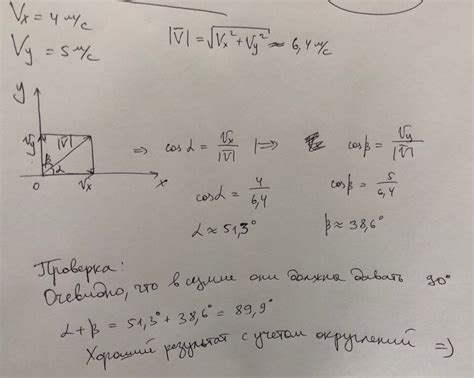 Vx = 4 м/с
Vy = 5 м/с
|V̅| = √(Vx² + Vy²) ≈ 6,4 м/с
y
Vy |V̅|
β
α
0 Vx x
⇒ cos α = Vx/|V̅| |⇒ cos β = Vy/|V̅|
cos α = 4/6,4 cos β = 5/6,4
α ≈ 51,3° β ≈ 38,6°
Проверка:
Очевидно, что в сумме они должны давать 90°
α + β = 51,3° + 38,6° = 89,9°
Хороший результат с учетом округлений =)